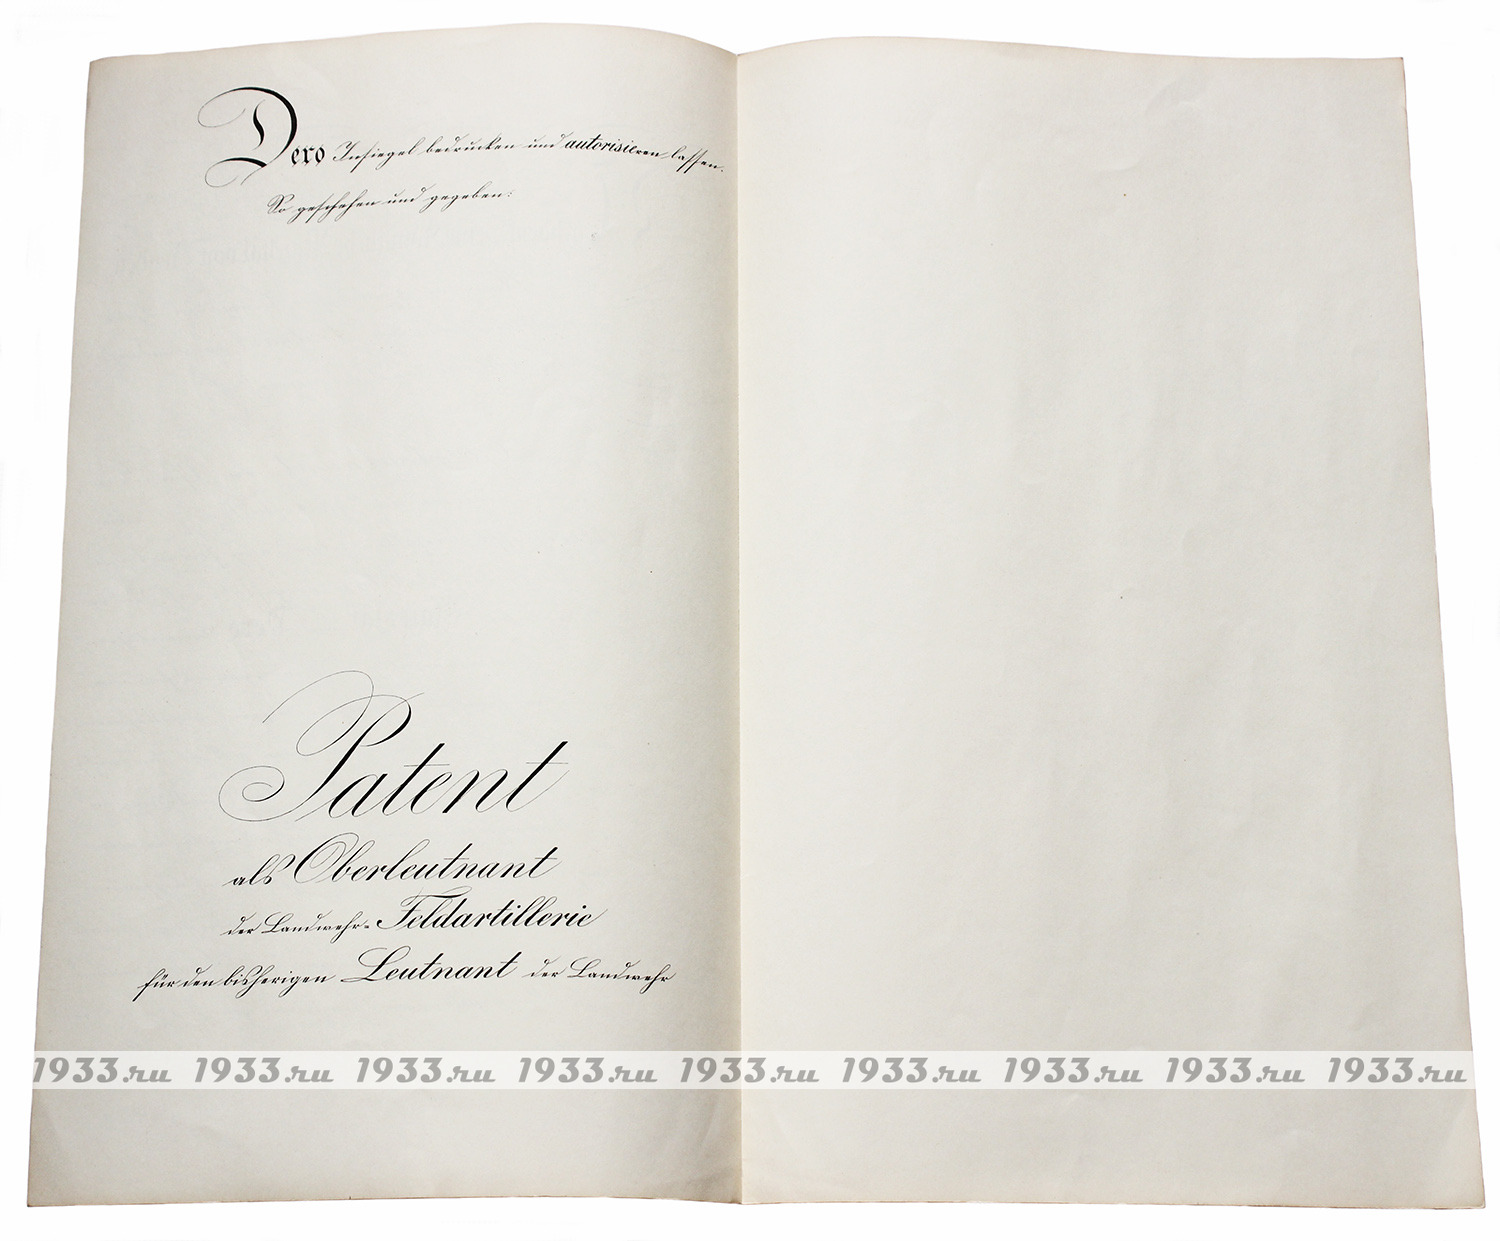 Dero Insiegel bedrucken und autorisieren lassen.
So geschehen und gegeben:
Patent
als Oberleutnant
der Landwehr-Feldartillerie
für den bisherigen Leutnant der Landwehr
1933.ru 1933.ru 1933.ru 1933.ru 1933.ru 1933.ru 1933.ru 1933.ru 1933.ru